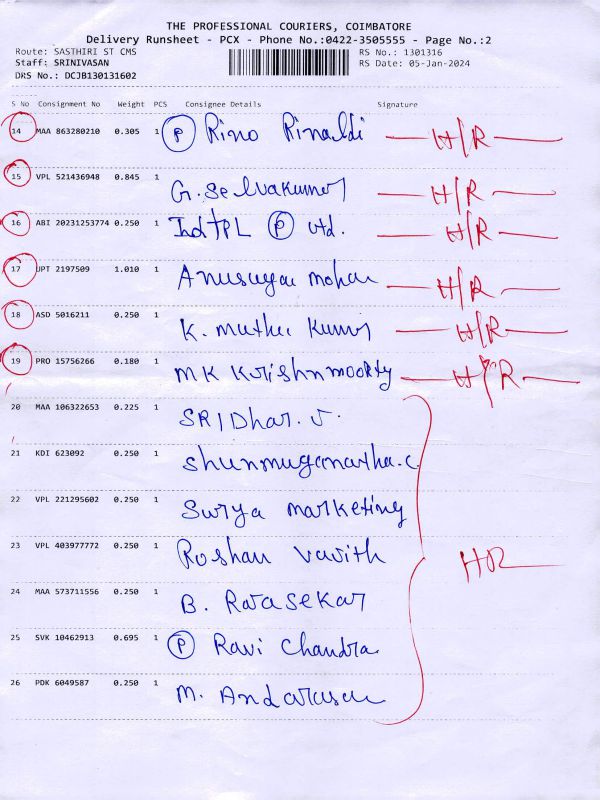 THE PROFESSIONAL COURIERS, COIMBATORE
Delivery Runsheet - PCX - Phone No.:0422-3505555 - Page No.:2
Route: SASTHIRI ST CMS RS No.: 1301316
Staff: SRINIVASAN RS Date: 05-Jan-2024
DRS No.: DCJB130131602
S No Consignment No Weight PCS Consignee Details Signature
14 MAA 863280210 0.305 1 P Rino Rinaldi H/R
15 VPL 521436948 0.845 1 G. Selvakumar H/R
16 ABI 20231253774 0.250 1 IndTPL P Ltd. H/R
17 JPT 2197509 1.010 1 Anusuya mohan H/R
18 ASD 5016211 0.250 1 K. muthu kumar H/R
19 PRO 15756266 0.180 1 MK Krishnmoorty H/R
20 MAA 106322653 0.225 1 SRIDhar. V.
21 KDI 623092 0.250 1 Shunmuganatha.C
22 VPL 221295602 0.250 1 Surya marketing
23 VPL 403977772 0.250 1 Roshan HR
24 MAA 573711556 0.250 1 B. Rajasekar
25 SVK 10462913 0.695 1 P Ravi Chandra
26 PDK 6049587 0.250 1 M.